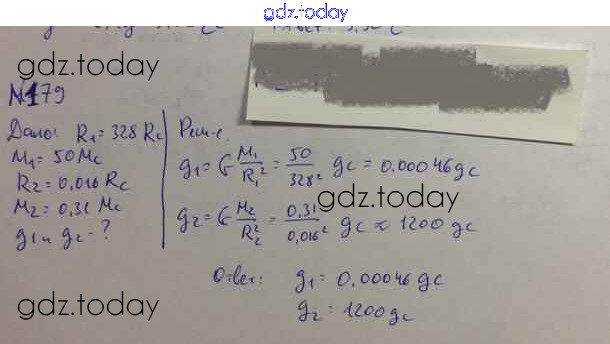 gdz.today
gdz.today
№179
Дано:
R₁=328 Rc
M₁=50Mc
R₂=0,016 Rc
M₂=0,31 Mc
g₁ и g₂ - ?
Реш-е.
g₁= G M₁/R₁² = 50/328² gc = 0,00046gc
gdz.today
g₂= G M₂/R₂² = 0,31/0,016² gc ≈ 1200 gc
Ответ: g₁ = 0,00046 gc
g₂ = 1200gc
gdz.today